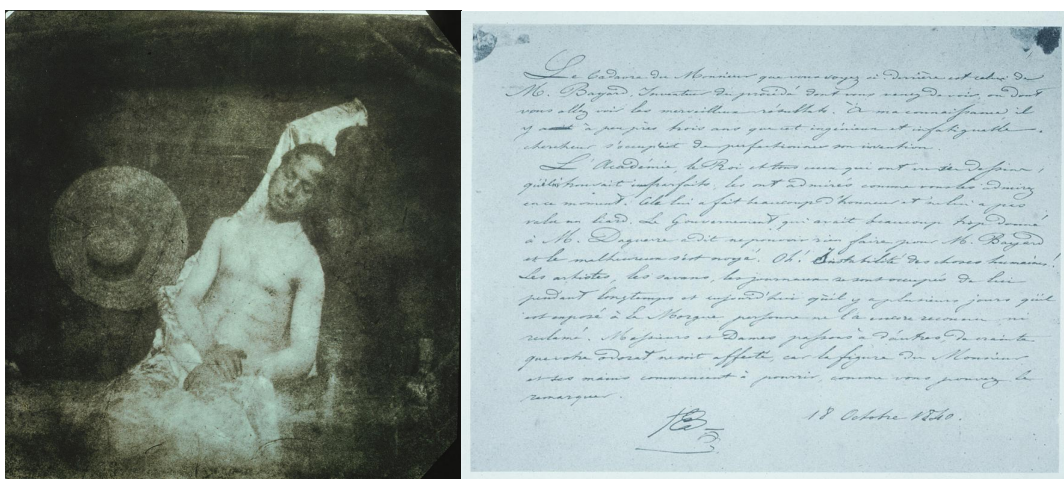 Le cadavre du Monsieur que vous voyez ci-derrière est celui de
M. Bayard, inventeur du procédé dont vous venez de voir, ou dont
vous allez voir les merveilleux résultats. À ma connaissance, il
y a à peu près trois ans que cet ingénieux et infatigable
chercheur s'occupait de perfectionner son invention.
L'Académie, le Roi et tous ceux qui ont vu ses dessins,
trouvait imparfaits, les ont admirés comme vous les admirez
en ce moment. Cela lui a fait beaucoup d'honneur et ne lui a pas
valu un liard. Le Gouvernement, qui avait beaucoup trop donné
à M. Daguerre a dit ne pouvoir rien faire pour M. Bayard
et le malheureux s'est noyé. Oh! Instabilité des choses humaines!
Les artistes, les savans, les journaux se sont occupés de lui
pendant longtemps et aujourd'hui qu'il y a plusieurs jours qu'il
est exposé à la Morgue personne ne l'a encore reconnu ni
réclamé. Messieurs et Dames, passons à d'autres, de crainte
que votre odorat ne soit affecté, car la figure du Monsieur
et ses mains commencent à pourrir, comme vous pouvez le
remarquer.
18 Octobre 1840.